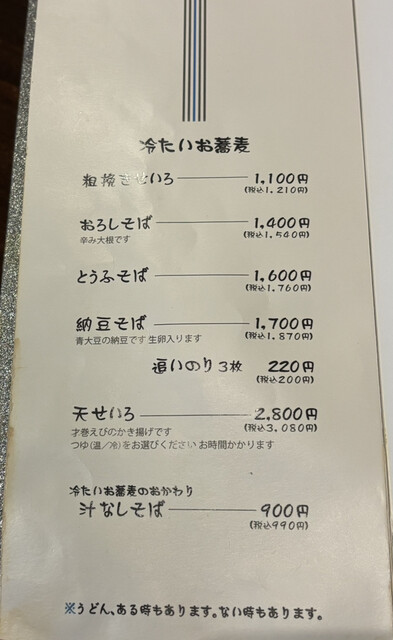 冷たいお蕎麦
粗挽きせいろ 1,100円
(税込1.210円)
おろしそば 1,400円
辛み大根です (税込1.540円)
とうふそば 1,600円
(税込1.760円)
納豆そば 1,700円
青大豆の納豆です 生卵入ります (税込1.870円)
追いのり3枚 220円
(税込200円)
天せいろ 2,800円
才巻えびのかき揚げです (税込3.080円)
つゆ(温/冷)をお選びください お時間かかります
冷たいお蕎麦のおかわり
汁なしそば 900円
(税込990円)
※うどん、ある時もあります。ない時もあります。